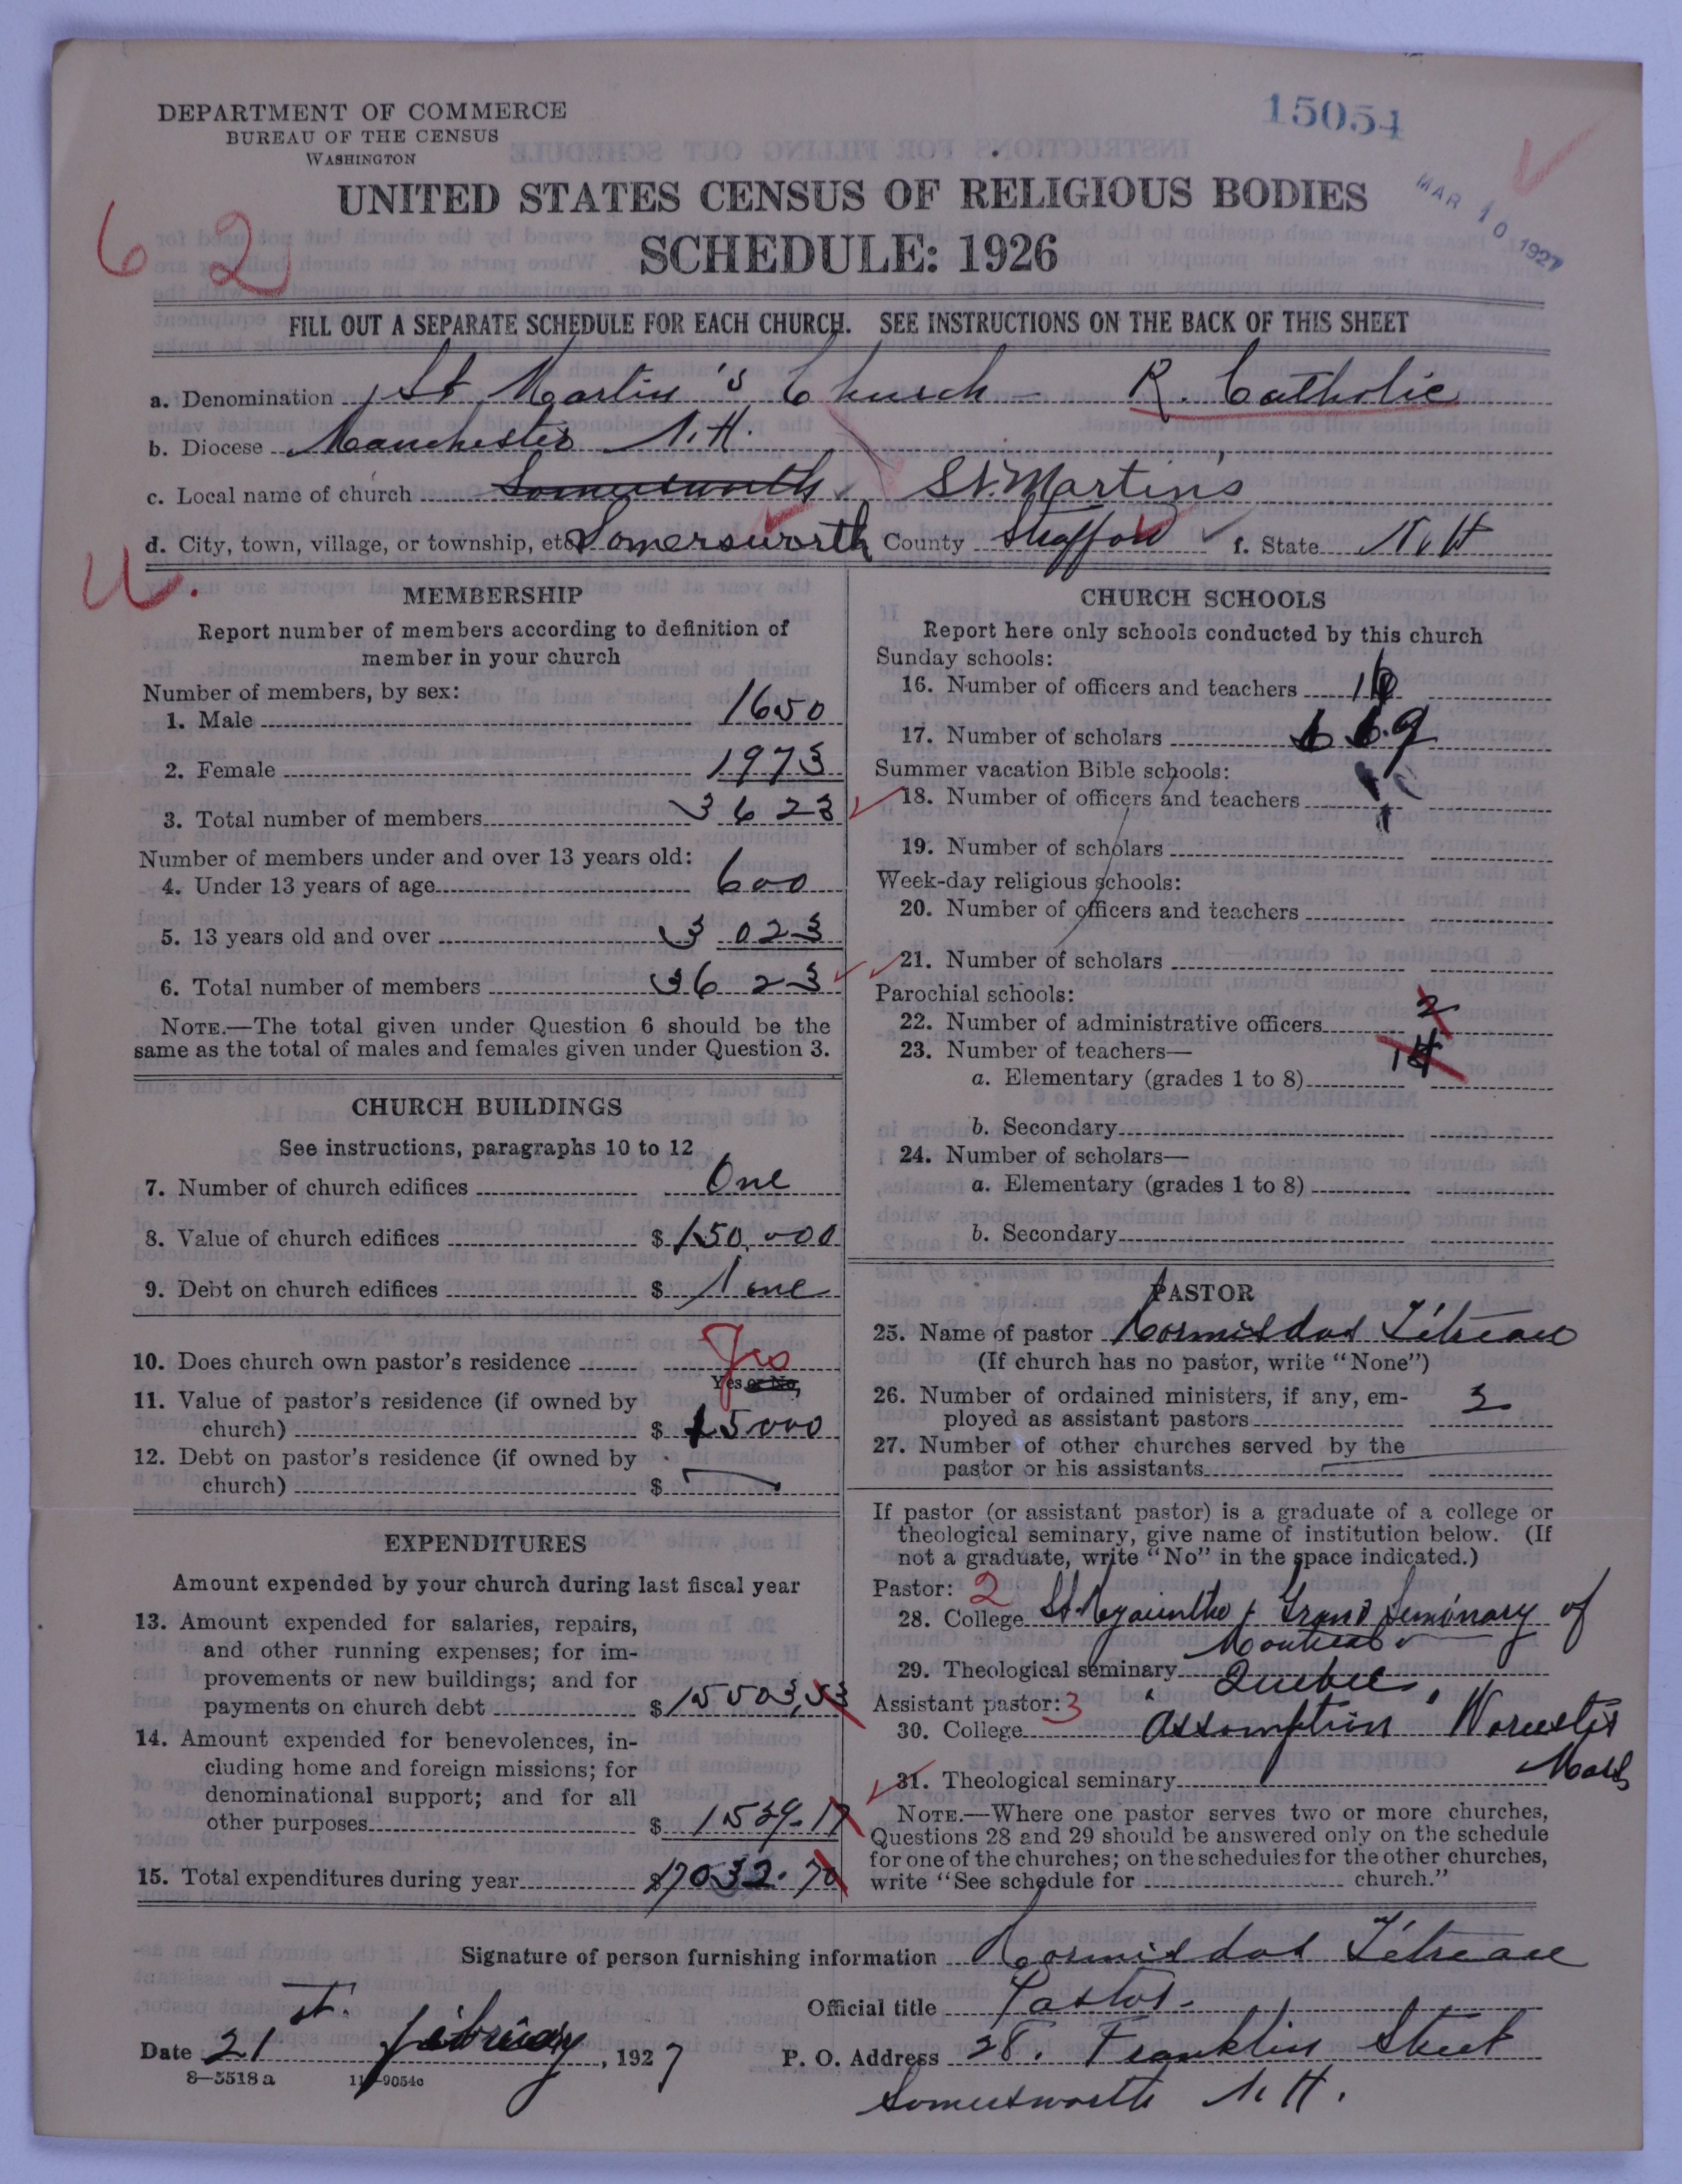 DEPARTMENT OF COMMERCE
BUREAU OF THE CENSUS
WASHINGTON
15054
MAR 10 1927
UNITED STATES CENSUS OF RELIGIOUS BODIES
SCHEDULE: 1926
6 2
FILL OUT A SEPARATE SCHEDULE FOR EACH CHURCH. SEE INSTRUCTIONS ON THE BACK OF THIS SHEET
a. Denomination St Martin's Church - R. Catholic
b. Diocese Manchester N.H.
c. Local name of church Somersworth St. Martin's
d. City, town, village, or township, etc. Somersworth County Strafford f. State N.H
U.
MEMBERSHIP
Report number of members according to definition of
member in your church
Number of members, by sex:
1. Male 1650
2. Female 1973
3. Total number of members 3623
Number of members under and over 13 years old:
4. Under 13 years of age 600
5. 13 years old and over 3 023
6. Total number of members 3623
NOTE.—The total given under Question 6 should be the
same as the total of males and females given under Question 3.
CHURCH BUILDINGS
See instructions, paragraphs 10 to 12
7. Number of church edifices One
8. Value of church edifices $ 150,000
9. Debt on church edifices $ None
10. Does church own pastor's residence Yes
Yes or No,
11. Value of pastor's residence (if owned by
church) $ 15000
12. Debt on pastor's residence (if owned by
church) $ —
EXPENDITURES
Amount expended by your church during last fiscal year
13. Amount expended for salaries, repairs,
and other running expenses; for im-
provements or new buildings; and for
payments on church debt $ 15503,53
14. Amount expended for benevolences, in-
cluding home and foreign missions; for
denominational support; and for all
other purposes $ 1529.17
15. Total expenditures during year $ 17032.70
CHURCH SCHOOLS
Report here only schools conducted by this church
Sunday schools:
16. Number of officers and teachers 16
17. Number of scholars 669
Summer vacation Bible schools:
18. Number of officers and teachers
19. Number of scholars
Week-day religious schools:
20. Number of officers and teachers
21. Number of scholars
Parochial schools:
22. Number of administrative officers 2
23. Number of teachers—
a. Elementary (grades 1 to 8) 14
b. Secondary
24. Number of scholars—
a. Elementary (grades 1 to 8)
b. Secondary
PASTOR
25. Name of pastor Hormisdas Tétreau
(If church has no pastor, write "None")
26. Number of ordained ministers, if any, em-
ployed as assistant pastors 2
27. Number of other churches served by the
pastor or his assistants —
If pastor (or assistant pastor) is a graduate of a college or
theological seminary, give name of institution below. (If
not a graduate, write "No" in the space indicated.)
Pastor: 2
28. College St. Hyacinthe & Grand Seminary of
Montreal
29. Theological seminary Quebec
Assistant pastor: 3
30. College Assumption Worcester
Mass
31. Theological seminary
NOTE.—Where one pastor serves two or more churches,
Questions 28 and 29 should be answered only on the schedule
for one of the churches; on the schedules for the other churches,
write "See schedule for church."
Signature of person furnishing information Hormisdas Tétreau
Official title Pastor.
Date 21 st. february, 1927
P. O. Address 28. Franklin Street
Somersworth N.H.
8—5518 a 11—9054c